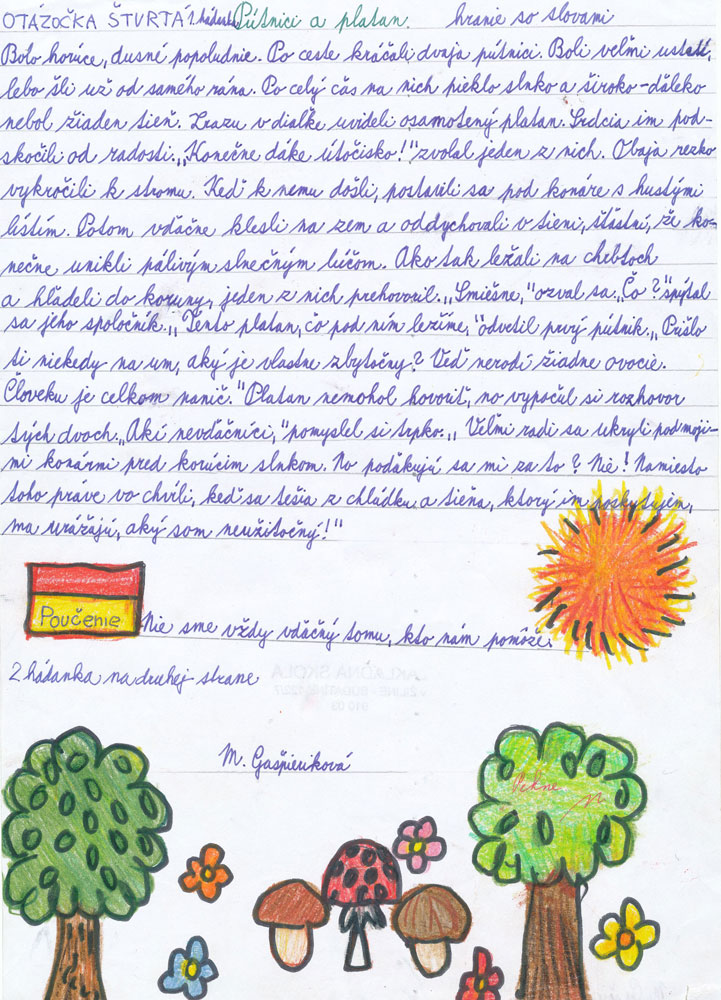 OTÁZOČKA ŠTVRTÁ 1. hádanka Pútnici a platan. hranie so slovami
Bolo horúce, dusné popoludnie. Po ceste kráčali dvaja pútnici. Boli veľmi ustatí,
lebo šli už od samého rána. Po celý čas na nich pieklo slnko a široko-ďaleko
nebol žiaden tieň. Zrazu v diaľke uvideli osamotený platan. Srdcia im pod-
skočili od radosti. „Konečne dáke útočisko!" zvolal jeden z nich. Obaja rezko
vykročili k stromu. Keď k nemu došli, postavili sa pod konáre s hustým
lístím. Potom vďačne klesli na zem a oddychovali v tieni, šťastní, že ko-
nečne unikli pálivým slnečným lúčom. Ako tak ležali na chrbtoch
a hľadeli do koruny, jeden z nich prehovoril. „Smiešne," ozval sa. „Čo?" spýtal
sa jeho spoločník. „Tento platan, čo pod ním ležíme," odvetil prvý pútnik. „Prišlo
ti niekedy na um, aký je vlastne zbytočný? Veď nerodí žiadne ovocie.
Človeku je celkom nanič." Platan nemohol hovoriť, no vypočul si rozhovor
tých dvoch. „Akí nevďačníci," pomyslel si trpko. „Veľmi radi sa ukryli pod moji-
mi konármi pred horúcim slnkom. No poďakujú sa mi za to? Nie! Namiesto
toho práve vo chvíli, keď sa tešia z chládku a tieňa, ktorý im poskytujem,
ma urážajú, aký som neužitočný!"
Poučenie Nie sme vždy vďačný tomu, kto nám pomôže.
2 hádanka na druhej strane
M. Gašpieriková
Pekne